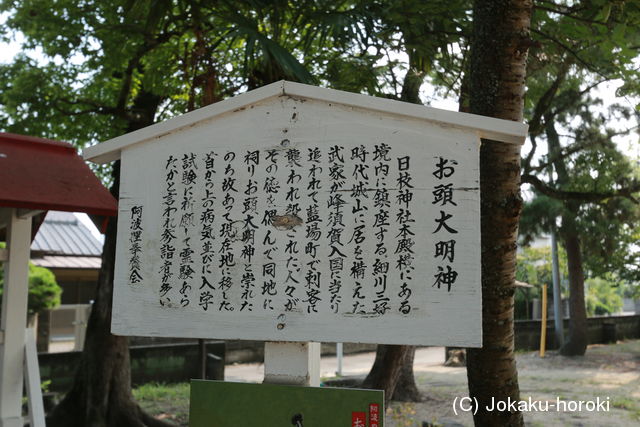 お頭大明神
日枝神社本殿横にある
境内に鎮座する、細川三好
時代城山に居を構えた
武家が蜂須賀入国に当たり
追われて藍場町で刺客に
襲われ殺された、人々が
その徳を偲んで同地に
祠りお頭大明神と崇れた
のち故あって現在地に移した。
首から上の病気並びに入学
試験に祈願して霊験あら
たかと言われ参詣者が多い
阿波理学会
(C) Jokaku-horoki